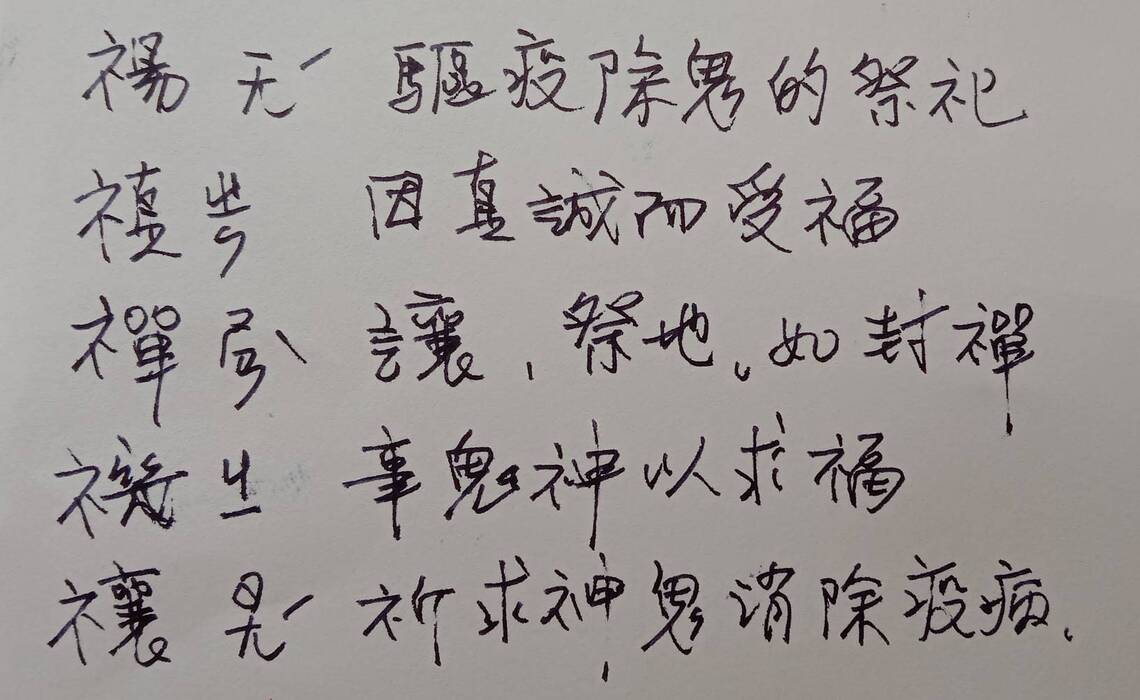 禓 ㄧㄤˊ 驅疫除鬼的祭祀
禛 ㄓㄣ 因真誠而受福
禪 ㄕㄢˋ 讓,祭地。如封禪
禨 ㄐㄧ 事鬼神以求福
禳 ㄖㄤˊ 祈求神鬼消除疫病.